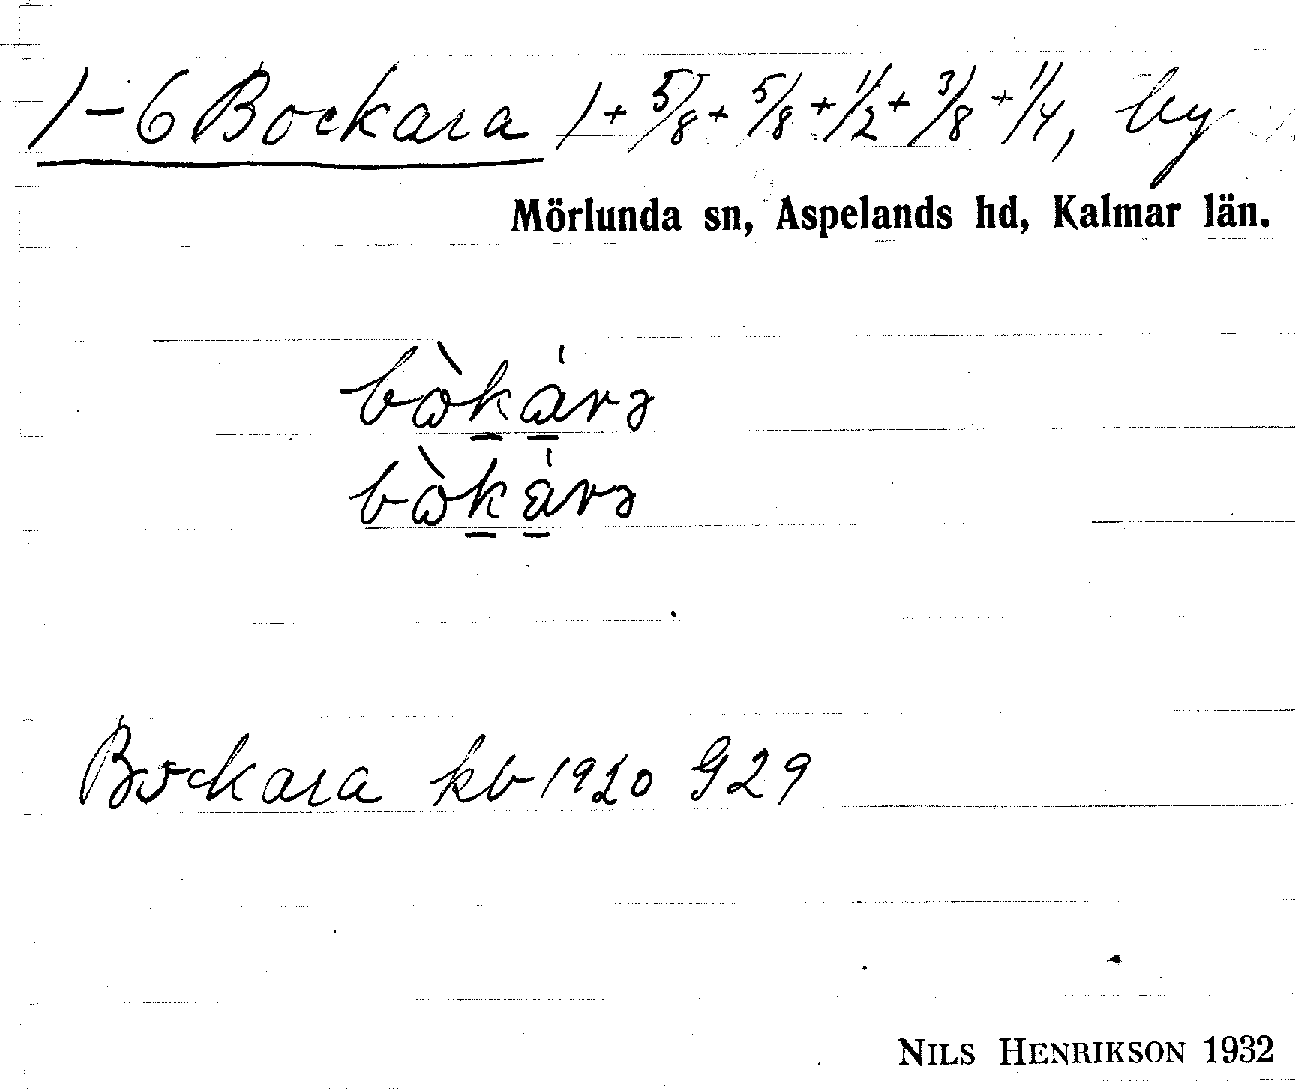 1-6 Bockara 1 + 5/8 + 5/8 + 1/2 + 3/8 + 1/4, by
Mörlunda sn, Aspelands hd, Kalmar län.
bὼk̲ά̲rə
bὼk̲ά̲rə
Bockara kb 1920 G29
NILS HENRIKSON 1932